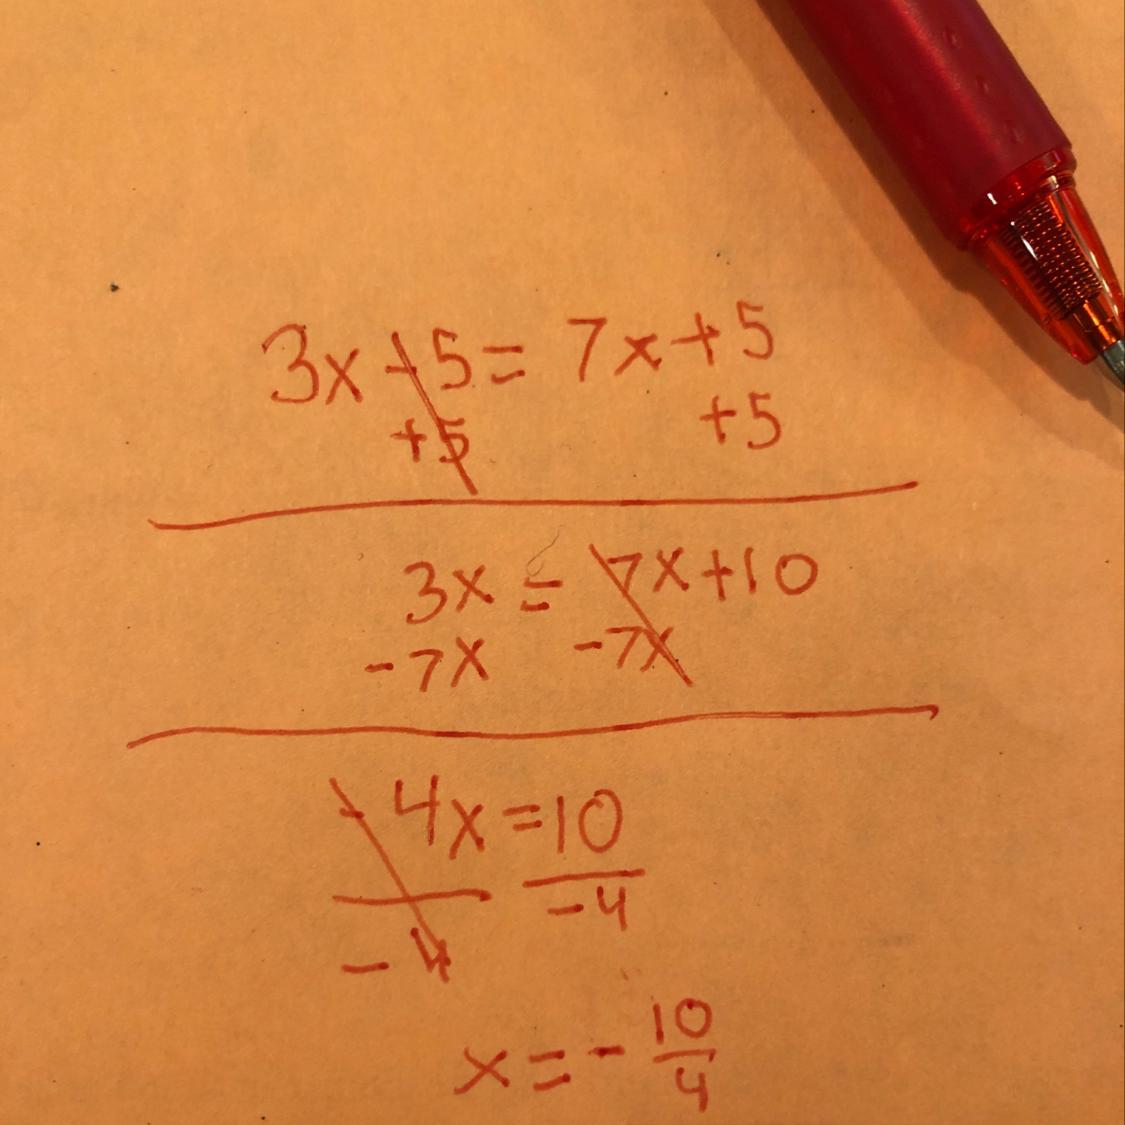 3x - 5 = 7x + 5
+5 +5
3x = 7x + 10
-7x -7x
-4x = 10
-4 -4
x = - 10/4